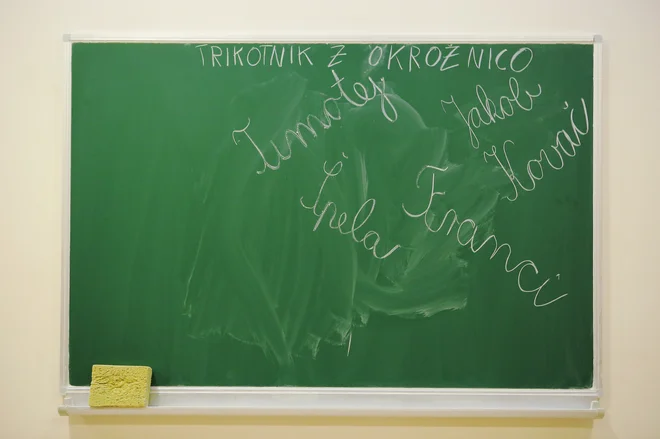 TRIKOTNIK Z OKROŽNICO
Timotej
Jakob
Kovač
Špela
Franci